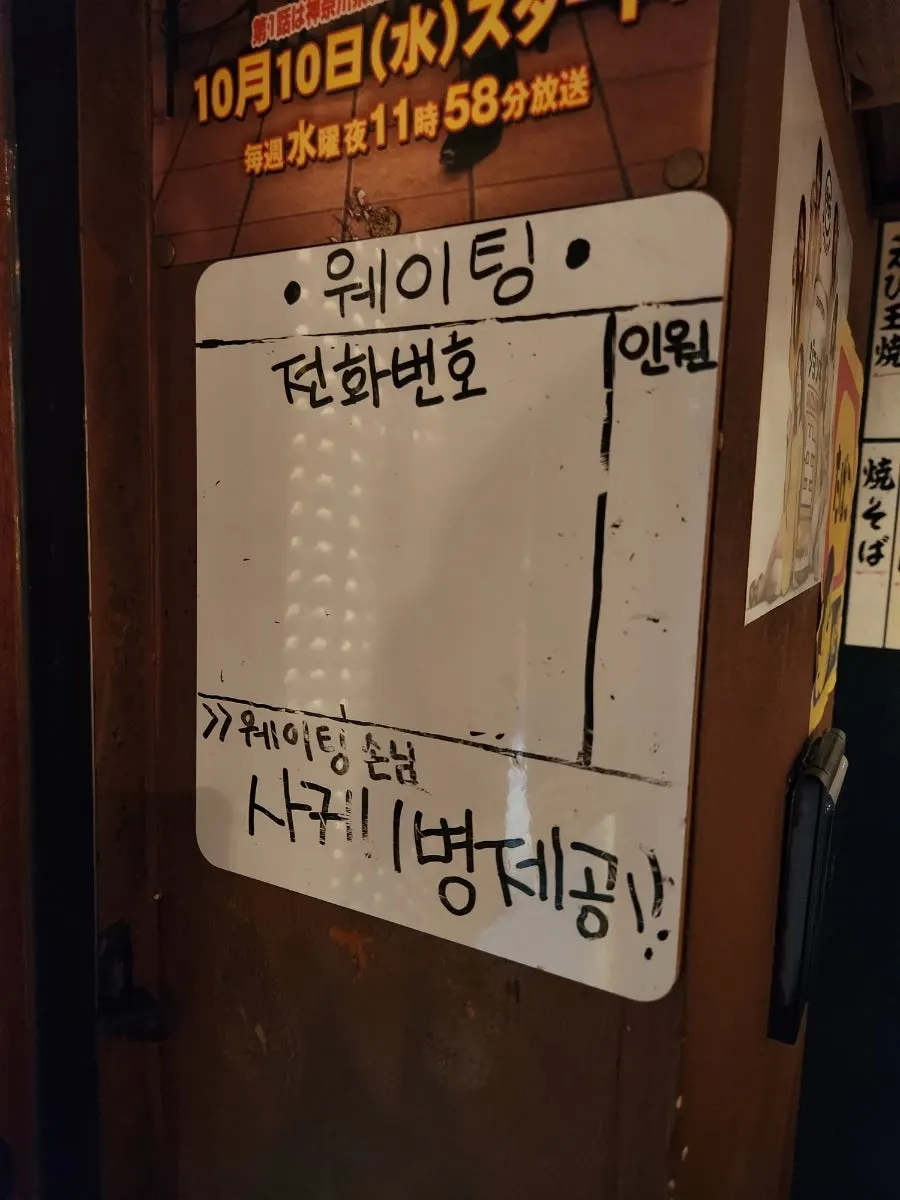 第1話は神奈川
10月10日(水)スタート
毎週水曜夜11時58分放送
• 웨이팅 •
전화번호
인원
>> 웨이팅 손님
사케 1병 제공!!
えび玉焼
焼そば